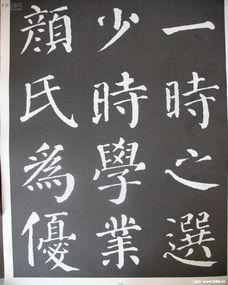 一時之選
少時學業
顏氏爲優